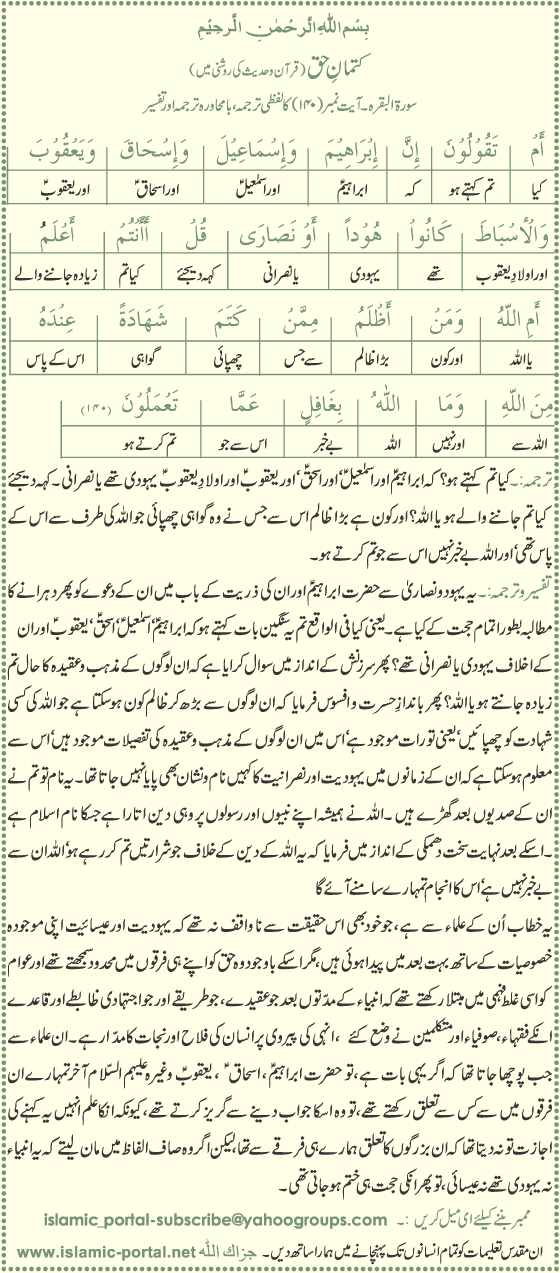 بِسْمِ اللهِ الرَّحْمٰنِ الرَّحِيْمِ
کتمانِ حق (قرآن و حدیث کی روشنی میں)
سورۃ البقرہ۔ آیت نمبر (۱۴۰) کا لفظی ترجمہ، با محاورہ ترجمہ اور تفسیر
أَمْ تَقُولُونَ إِنَّ إِبْرَاهِيمَ وَإِسْمَاعِيلَ وَإِسْحَاقَ وَيَعْقُوبَ
کیا تم کہتے ہو کہ ابراہیمؑ اور اسمٰعیلؑ اور اسحاقؑ اور یعقوبؑ
وَالْأَسْبَاطَ كَانُوا هُوداً أَوْ نَصَارَى قُلْ أَأَنْتُمْ أَعْلَمُ
اور اولادِ یعقوب تھے یہودی یا نصرانی کہہ دیجئے کیا تم زیادہ جاننے والے
أَمِ اللهُ وَمَنْ أَظْلَمُ مِمَّنْ كَتَمَ شَهَادَةً عِنْدَهُ
یا اللہ اور کون بڑا ظالم سے جس چھپائی گواہی اس کے پاس
مِنَ اللهِ وَمَا اللهُ بِغَافِلٍ عَمَّا تَعْمَلُونَ (۱۴۰)
اللہ سے اور نہیں اللہ بے خبر اس سے جو تم کرتے ہو
ترجمہ:۔ کیا تم کہتے ہو؟ کہ ابراہیمؑ اور اسمٰعیلؑ، اور اسحٰقؑ، اور یعقوبؑ اور اولادِ یعقوبؑ یہودی تھے یا نصرانی۔ کہہ دیجئے
کیا تم جاننے والے ہو یا اللہ؟ اور کون ہے بڑا ظالم اس سے جس نے وہ گواہی چھپائی جو اللہ کی طرف سے اس کے
پاس تھی، اور اللہ بے خبر نہیں اس سے جو تم کرتے ہو۔
تفسیر و ترجمہ:۔ یہ یہود و نصاریٰ سے حضرت ابراہیمؑ اور ان کی ذریت کے باب میں ان کے دعوے کو پھر دہرانے کا
مطالبہ بطور اتمام حجت کے کیا ہے۔ یعنی کیا فی الواقع تم یہ سنگین بات کہتے ہو کہ ابراہیمؑ، اسمٰعیلؑ، اسحٰقؑ، یعقوبؑ اور ان
کے اخلاف یہودی یا نصرانی تھے؟ پھر سرزنش کے انداز میں سوال کرایا ہے کہ ان لوگوں کے مذہب و عقیدہ کا حال تم
زیادہ جانتے ہو یا اللہ؟ پھر باندازِ حسرت و افسوس فرمایا کہ ان لوگوں سے بڑھ کر ظالم کون ہو سکتا ہے جو اللہ کی کسی
شہادت کو چھپائیں، یعنی تورات موجود ہے، اس میں ان لوگوں کے مذہب و عقیدہ کی تفصیلات موجود ہیں، اس سے
معلوم ہو سکتا ہے کہ ان کے زمانوں میں یہودیت اور نصرانیت کا کہیں نام و نشان بھی پایا نہیں جاتا تھا۔ یہ نام تو تم نے
ان کے صدیوں بعد گھڑے ہیں۔ اللہ نے ہمیشہ اپنے نبیوں اور رسولوں پر وہی دین اتارا ہے جسکا نام اسلام ہے
۔ اسکے بعد نہایت سخت دھمکی کے انداز میں فرمایا کہ یہ اللہ کے دین کے خلاف جو شرارتیں تم کر رہے ہو، اللہ ان سے
بے خبر نہیں ہے، اس کا انجام تمہارے سامنے آئے گا
یہ خطاب اُن کے علماء سے ہے، جو خود بھی اس حقیقت سے ناواقف نہ تھے کہ یہودیت اور عیسائیت اپنی موجودہ
خصوصیات کے ساتھ بہت بعد میں پیدا ہوئی ہیں، مگر اسکے باوجود وہ حق کو اپنے ہی فرقوں میں محدود سمجھتے تھے اور عوام
کو اسی غلط فہمی میں مبتلا رکھتے تھے کہ انبیاء کے مدّتوں بعد جو عقیدے، جو طریقے اور جو اجتہادی ضابطے اور قاعدے
انکے فقہاء، صوفیاء اور متکلمین نے وضع کئے، انہی کی پیروی پر انسان کی فلاح اور نجات کا مدار ہے۔ ان علماء سے
جب پوچھا جاتا تھا کہ اگر یہی بات ہے، تو حضرت ابراہیمؑ، اسحاقؑ، یعقوبؑ وغیرہ علیہم السّلام آخر تمہارے ان
فرقوں میں سے کس سے تعلق رکھتے تھے، تو وہ اسکا جواب دینے سے گریز کرتے تھے، کیونکہ انکا علم انہیں یہ کہنے کی
اجازت تو نہ دیتا تھا کہ ان بزرگوں کا تعلق ہمارے ہی فرقے سے تھا، لیکن اگر وہ صاف الفاظ میں مان لیتے کہ یہ انبیاء
نہ یہودی تھے نہ عیسائی، تو پھر انکی حجت ہی ختم ہو جاتی تھی۔
ممبر بننے کیلئے ای میل کریں :۔ islamic_portal-subscribe@yahoogroups.com
ان مقدس تعلیمات کو تمام انسانوں تک پہنچانے میں ہمارا ساتھ دیں۔ جزاك الله www.islamic-portal.net